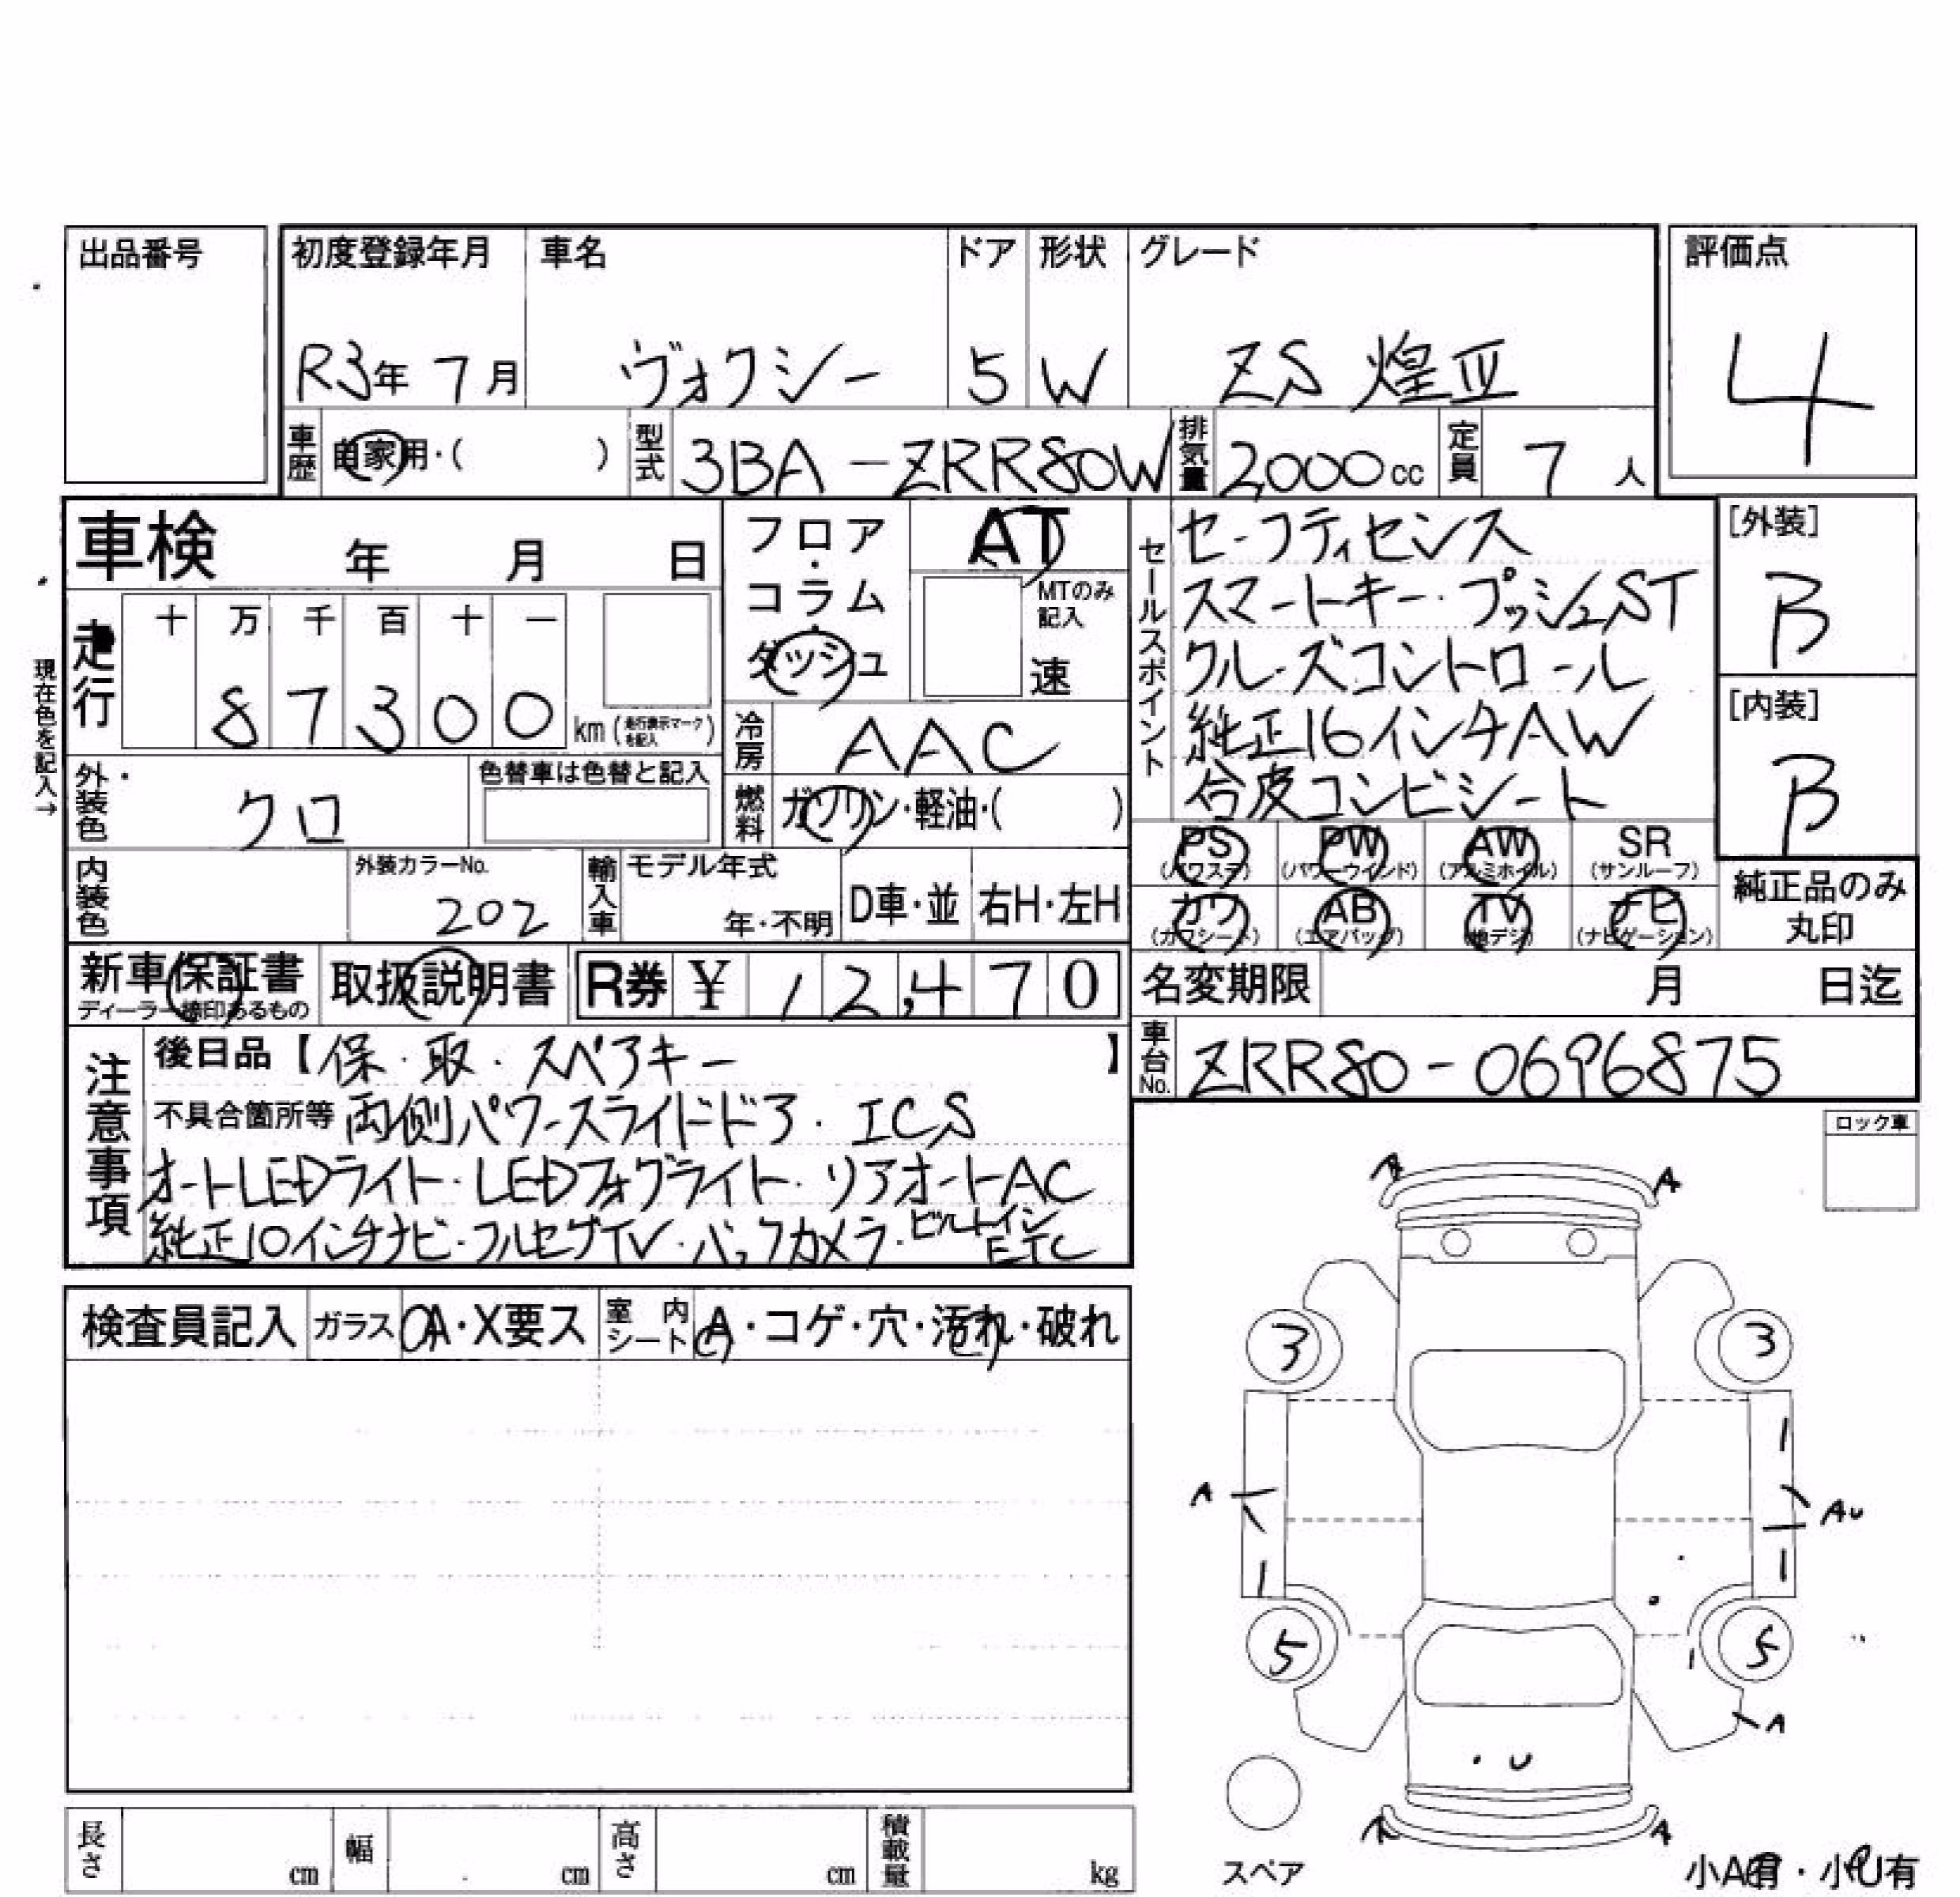 出品番号
初度登録年月 車名 ドア 形状 グレード 評価点
R3年 7月 ヴォクシー 5 W ZS 煌Ⅲ 4
車歴 自家用・( ) 型式 3BA-ZRR80W 排気量 2000cc 定員 7人
車検 年 月 日
フロア・コラム・ダッシュ
AT
MTのみ記入
速
セールスポイント
セーフティセンス
スマートキー・プッシュST
クルーズコントロール
純正16インチAW
合皮コンビシート
[外装]
B
[内装]
B
現在色を記入→
走行 十 万 千 百 十 一
87300 km (走行表示マークを記入)
冷房 AAC
外装色 クロ 色替車は色替と記入
燃料 ガソリン・軽油・( )
PS (パワステ) PW (パワーウインド) AW (アルミホイル) SR (サンルーフ)
カワ (カワシート) AB (エアバッグ) TV (地デジ) ナビ (ナビゲーション)
純正品のみ丸印
内装色 外装カラーNo. 202 輸入車 モデル年式 年・不明 D車・並 右H・左H
新車保証書 ディーラー捺印あるもの 取扱説明書 R券 ¥ 12,470
名変期限 月 日迄
車台No. ZRR80-0696875
注意事項
後日品【保・取・スペアキー 】
不具合箇所等 両側パワースライドドア・ICS
オートLEDライト・LEDフォグライト・リアオートAC
純正10インチナビ・フルセグTV・バックカメラ・ビルトインETC
ロック車
検査員記入 ガラス A・X要ス 室内シート A・コゲ・穴・汚れ・破れ
A A
3 3
A AU
5 5
A
U
A A
スペア
小A有・小U有
長さ cm 幅 cm 高さ cm 積載量 kg